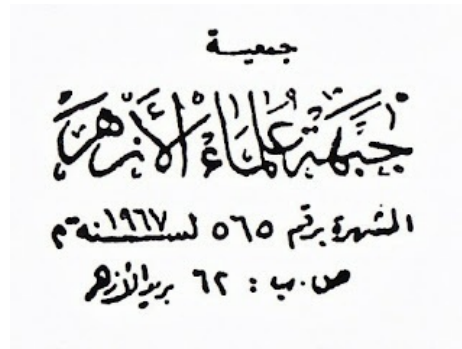 جمعية
جبهة علماء الأزهر
المشهرة برقم ٥٦٥ لسنة ١٩٦٧م
ص.ب : ٦٢ بريد الأزهر